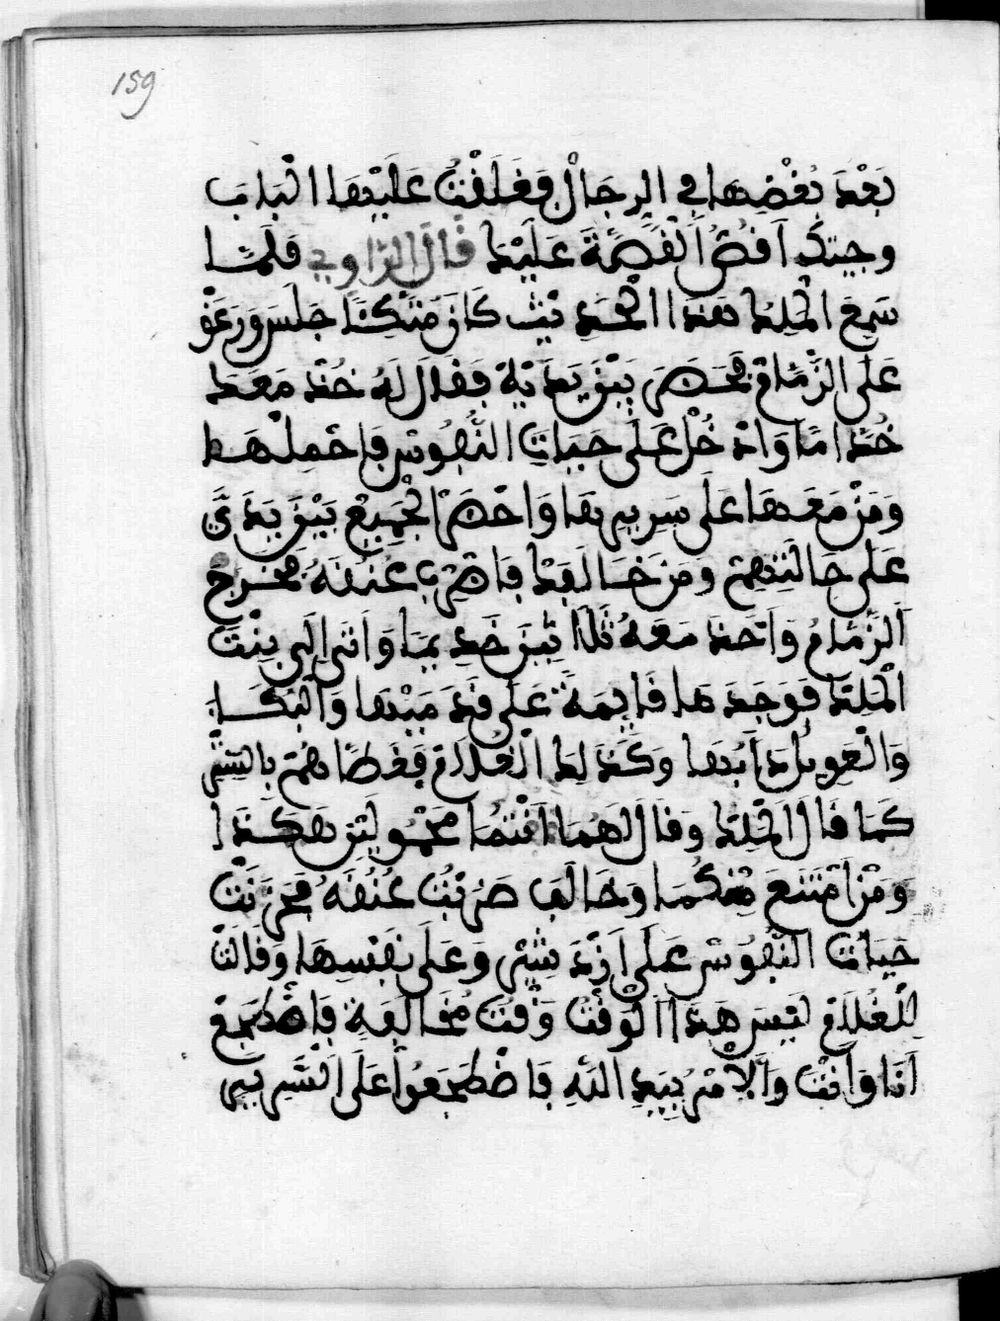 159
بَعْدَ بُغْضِهَا فِي الرِجَالْ وَغَلَقْتُ عَلَيْهَا الْبَابَ
وجيتك اَقُصُّ الْقِصَّةَ عَلَيْكَ قَالَ الرَّاوِي فَلَمَّا
سَمِعَ الْمَلِكُ هَذَا الْحَدِيثَ كَانَ مُتَّكِئًا جَلَسَ وَزَعَقَ
عَلَى الزَّمَّامْ فَحَضَرَ بَيْنَ يَدَيْهِ فَقَالَ لَهُ خُذْ مَعَكَ
خُدَّامًا وَادْخُلْ عَلَى حَيَاتِ النُّفُوسِ فَاحْمِلْهَا
وَمَنْ مَعَهَا عَلَى سَرِيرِهَا وَاحْضِرْ الْجَمِيعْ بَيْنَ يَدَيَّ
عَلَى حَالَتِهِمْ وَمَنْ خَالَفَكَ فَاضْرِبْ عُنُقَهُ فَخَرَجَ
الزَّمَّامُ وَاَخَذَ مَعَهُ ثَلَاثِينَ خَدِيمًا وَاَتَى اِلَى بِنْتَ
الْمَلِكْ فَوَجَدَهَا قَايِمَةً عَلَى قَدَمَيْهَا وَالْبُكَاءَ
وَالْعَوِيلْ دَأْبُهَا وَكَذَلِكَ الْغُلَامْ فَغَطَّاهُمْ بِالسِّتْرِ
كَمَا قَالَ الْمَلِكْ وَقَالَ لَهُمَا اَنْتُمَا مَحْمُولَيْنِ هَكَذَا
وَمَنْ اَمْتَنَعَ مِنْكُمَا وخَالَفَ ضَرَبْتُ عُنُقَهُ فَحَزِنَتْ
حَيَاتُ النُّفُوسْ عَلَى اَزْدَشِيْرْ وَعَلَى نَفْسِهَا وَقَالَتْ
لِلْغُلَامْ لَيْسَ هَذَا الْوَقْتُ وَقْتَ مُخَالَفَةٍ فَاضْطَجَعْ
اَنَا وَاَنْتَ وَالْاَمْرُ بِيَدِ اللَّهِ فَاضْطَجَعُوا عَلَى السَّرِيرِ